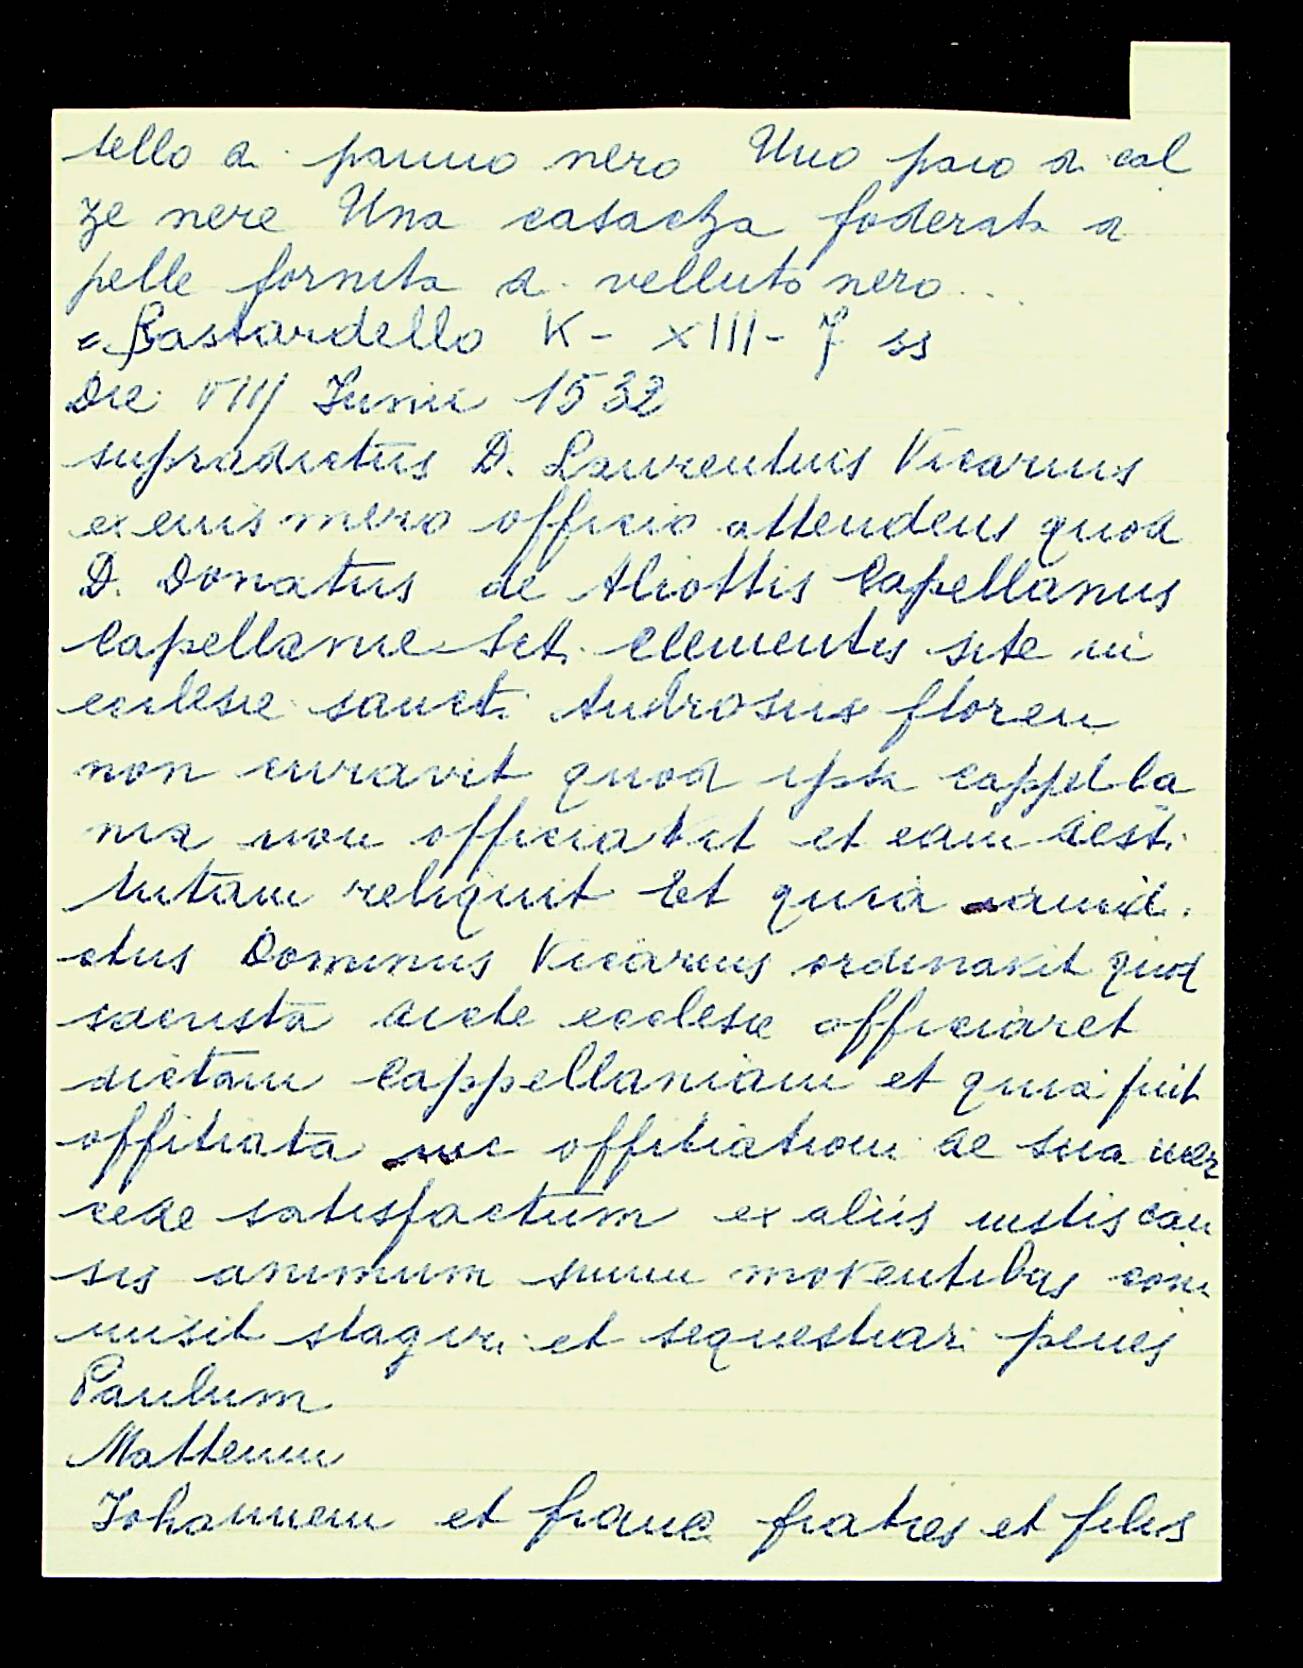 tello d. panno nero Uno paio d. cal
ze nere Una casacha foderata d
pelle fornita d. velluto nero...
Bastardello K - XIII - 7 ss
Die VIII Junii 1532
supradictus D. Laurentius Vicarius
ex eius mero officio attendens quod
D. Donatus de Aliottis Capellanus
Capellanie Sct. Clementis site in
ecclesie sancti Androsus floren
non curavit quod ipsa cappella
nia non officiavit et eam desti
tutam reliquit Et quia
ctus Dominus Vicarius ordinavit quod
sacrista dicte ecclesie officiaret
dictam Cappellaniam et quia fuit
offitiata nec offitiatione de sua mer
cede satisfactum ex aliis iustis cau
sis animum suum moventibus com
misit stagiri et sequestrari penes
Paulum
Matteum
Johannem et franc fratres et filis